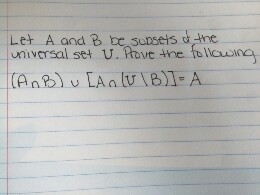 Let A and B be subsets of the
universal set U. Prove the following
(A∩B) ∪ [A∩(U\B)] = A